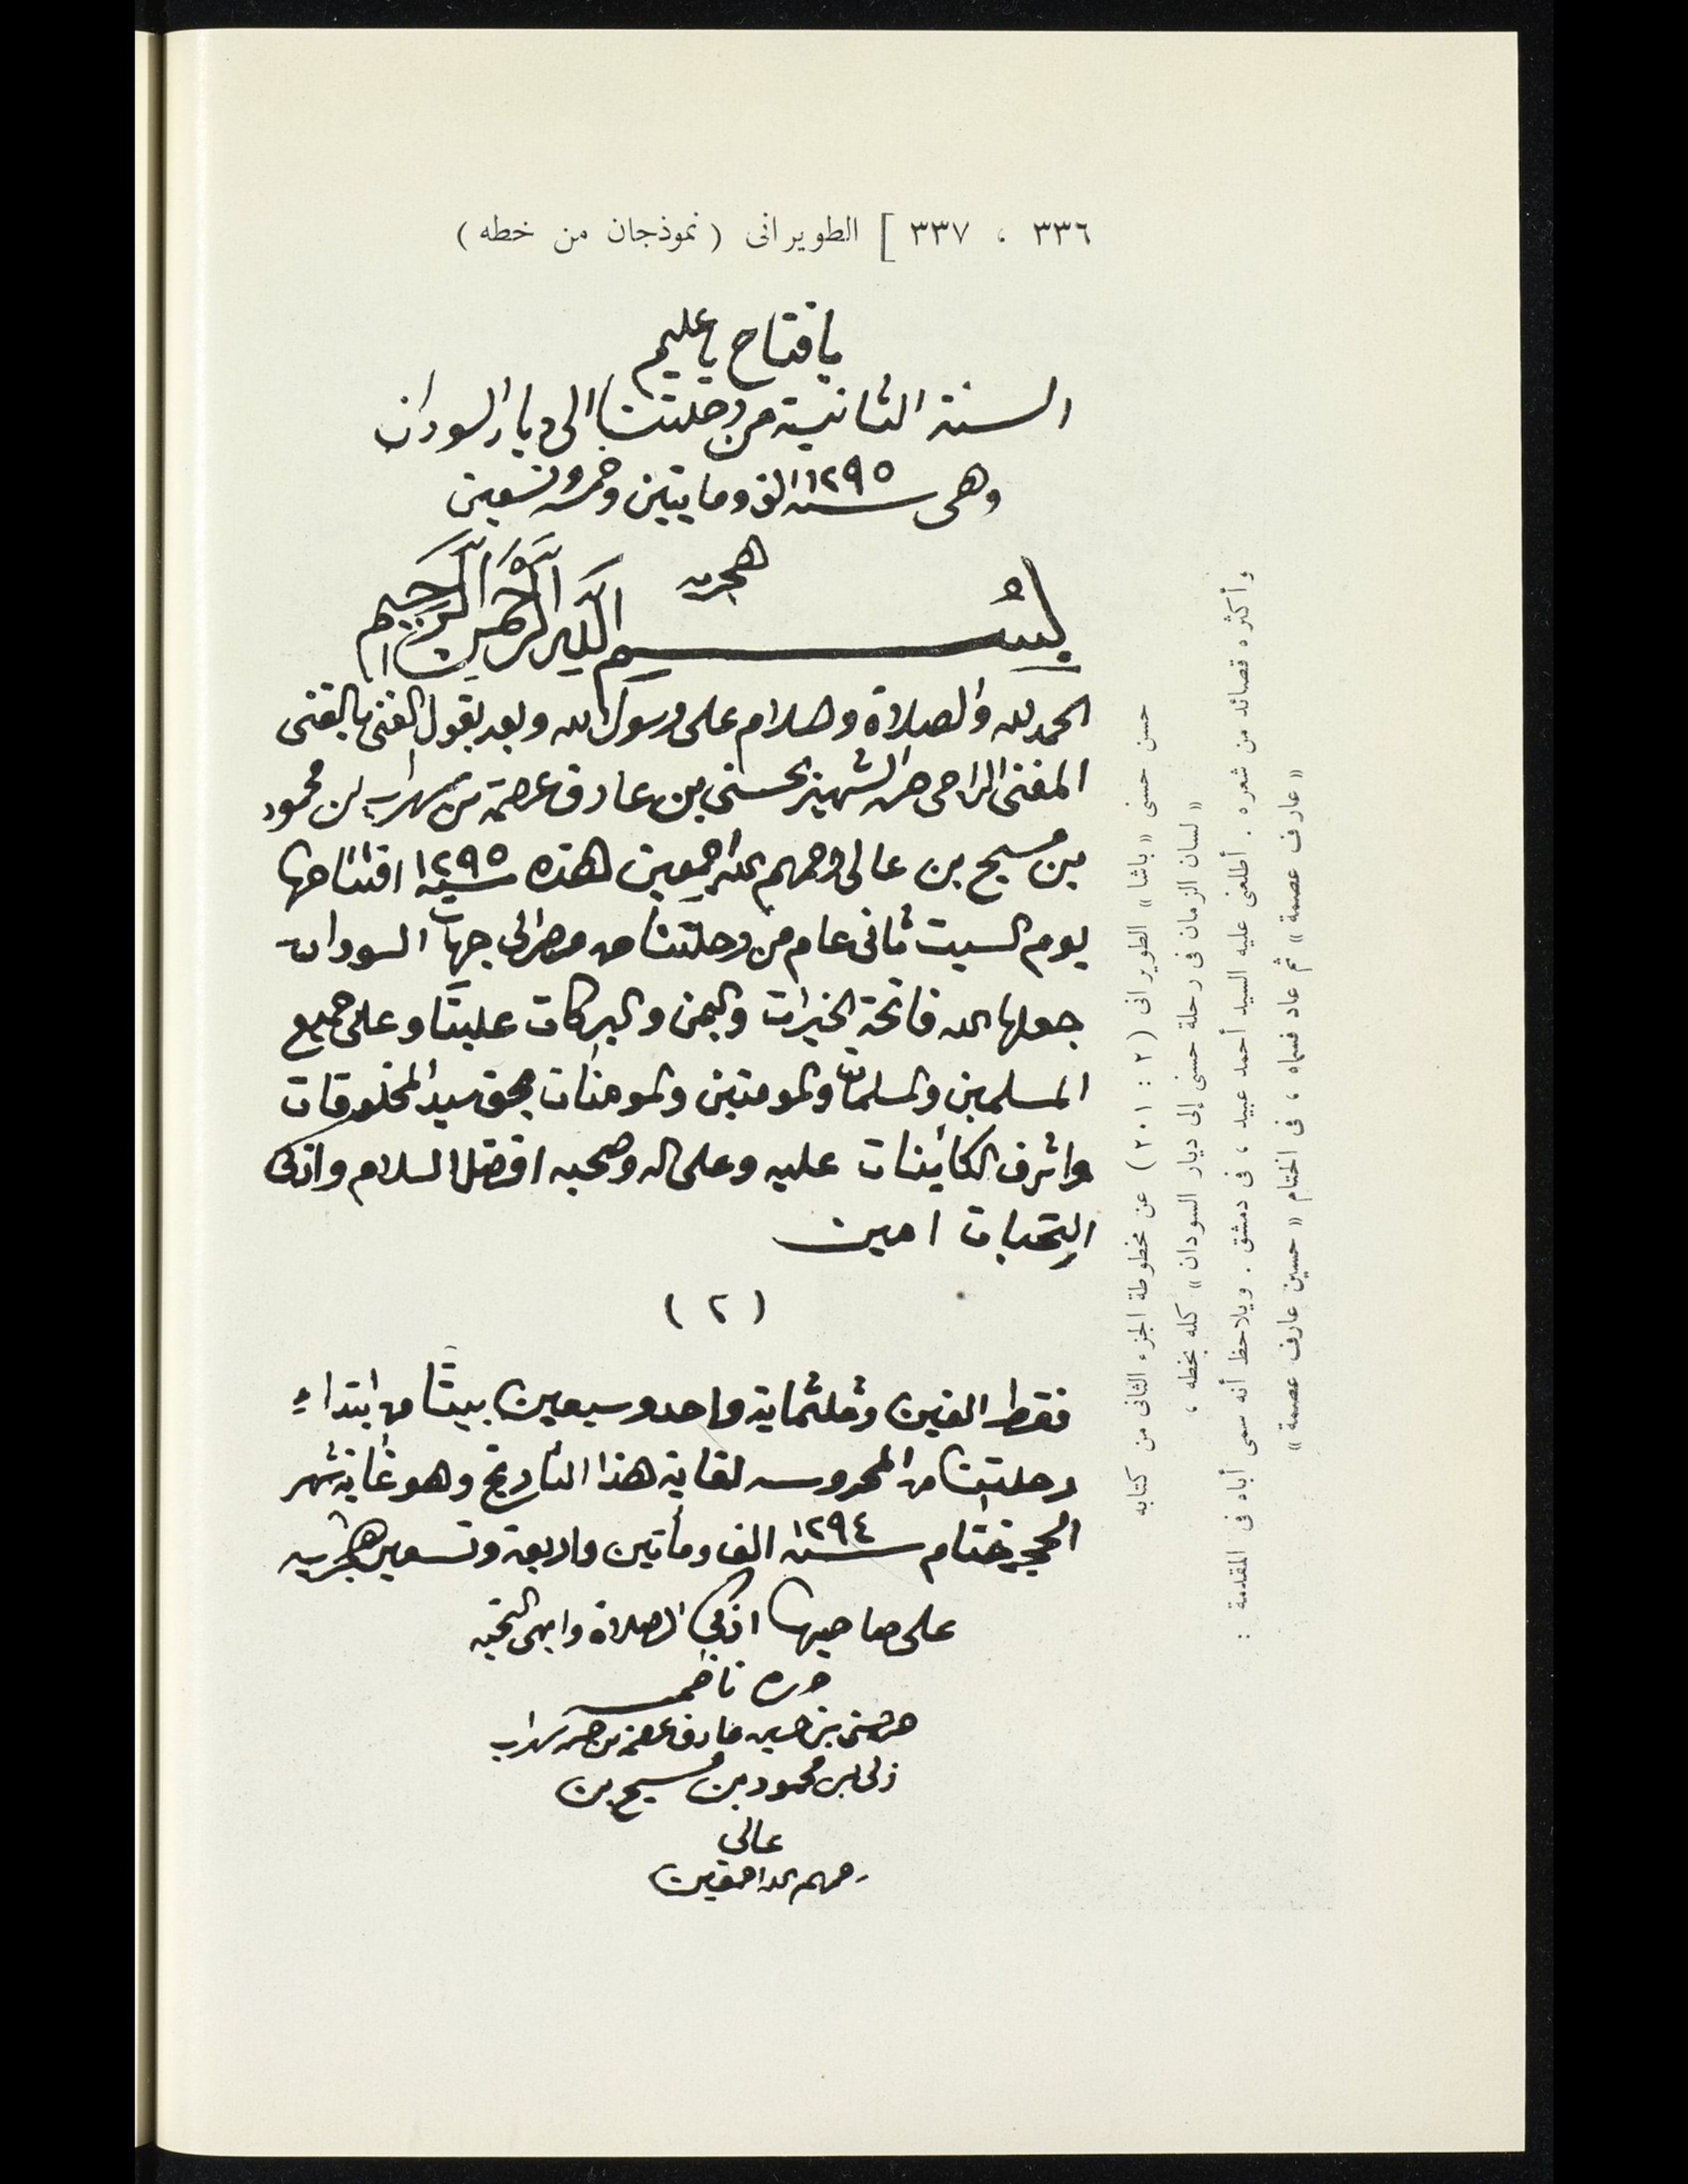 ٣٣٦ ، ٣٣٧ ] الطويرانى ( نموذجان من خطه )
يا فتاح يا عليم
السنة الثانية من رحلتنا الى ديار السودان
وهى سنة ١٢٩٥ الف ومايتين وخمسه وتسعين
هجريه
بسم الله الرحمن الرحيم
الحمد لله والصلاة والسلام على رسول الله وبعد يقول الغنى بالغنى
المغنى الراجى حسن الشهير بحسنى بن عارف عصمة بن سهراب بن محمود
بن مسيح بن عالى رحمهم الله اجمعين هذه سنة ١٢٩٥ افتتاحها
يوم السبت ثانى عام من رحلتنا من مصر الى جهات السودان
جعلها الله فاتحة الخيرات واليمن والبركات علينا وعلى جميع
المسلمين والمسلمات والمومنين والمومنات بحق سيد المخلوقات
واشرف الكائنات عليه وعلى اله وصحبه افضل السلام وازكى
التحيات امين
( ٢ )
فقط الفين وثلثماية واحد وسبعين بيتا من ابتداء
رحلتنا من المحروسه لغاية هذا التاريخ وهو غاية شهر
الحجه ختام سنة ١٢٩٤ الف ومأتين واربعة وتسعين هجريه
على صاحبها ازكى الصلاة وابهى التحيه
حرره ناظمه
حسن حسنى بن حسين عارف عصمة بن حسن سهراب
زلى بن محمود بن مسيح بن
عالى
رحمهم الله اجمعين
حسن حسنى « باشا » الطويرانى ( ٢ : ٢٠١ ) عن مخطوطة الجزء الثانى من كتابه
« لسان الزمان فى رحلة حسنى إلى ديار السودان » كله بخطه ،
وأكثره قصائد من شعره . أطلعنى عليه السيد أحمد عبيد ، فى دمشق . ويلاحظ أنه سمى أباه فى المقدمة :
« عارف عصمة » ثم عاد فسماه ، فى الختام « حسين عارف عصمة »